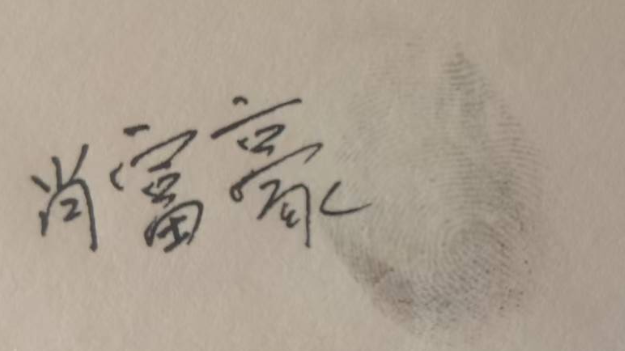 肖富豪